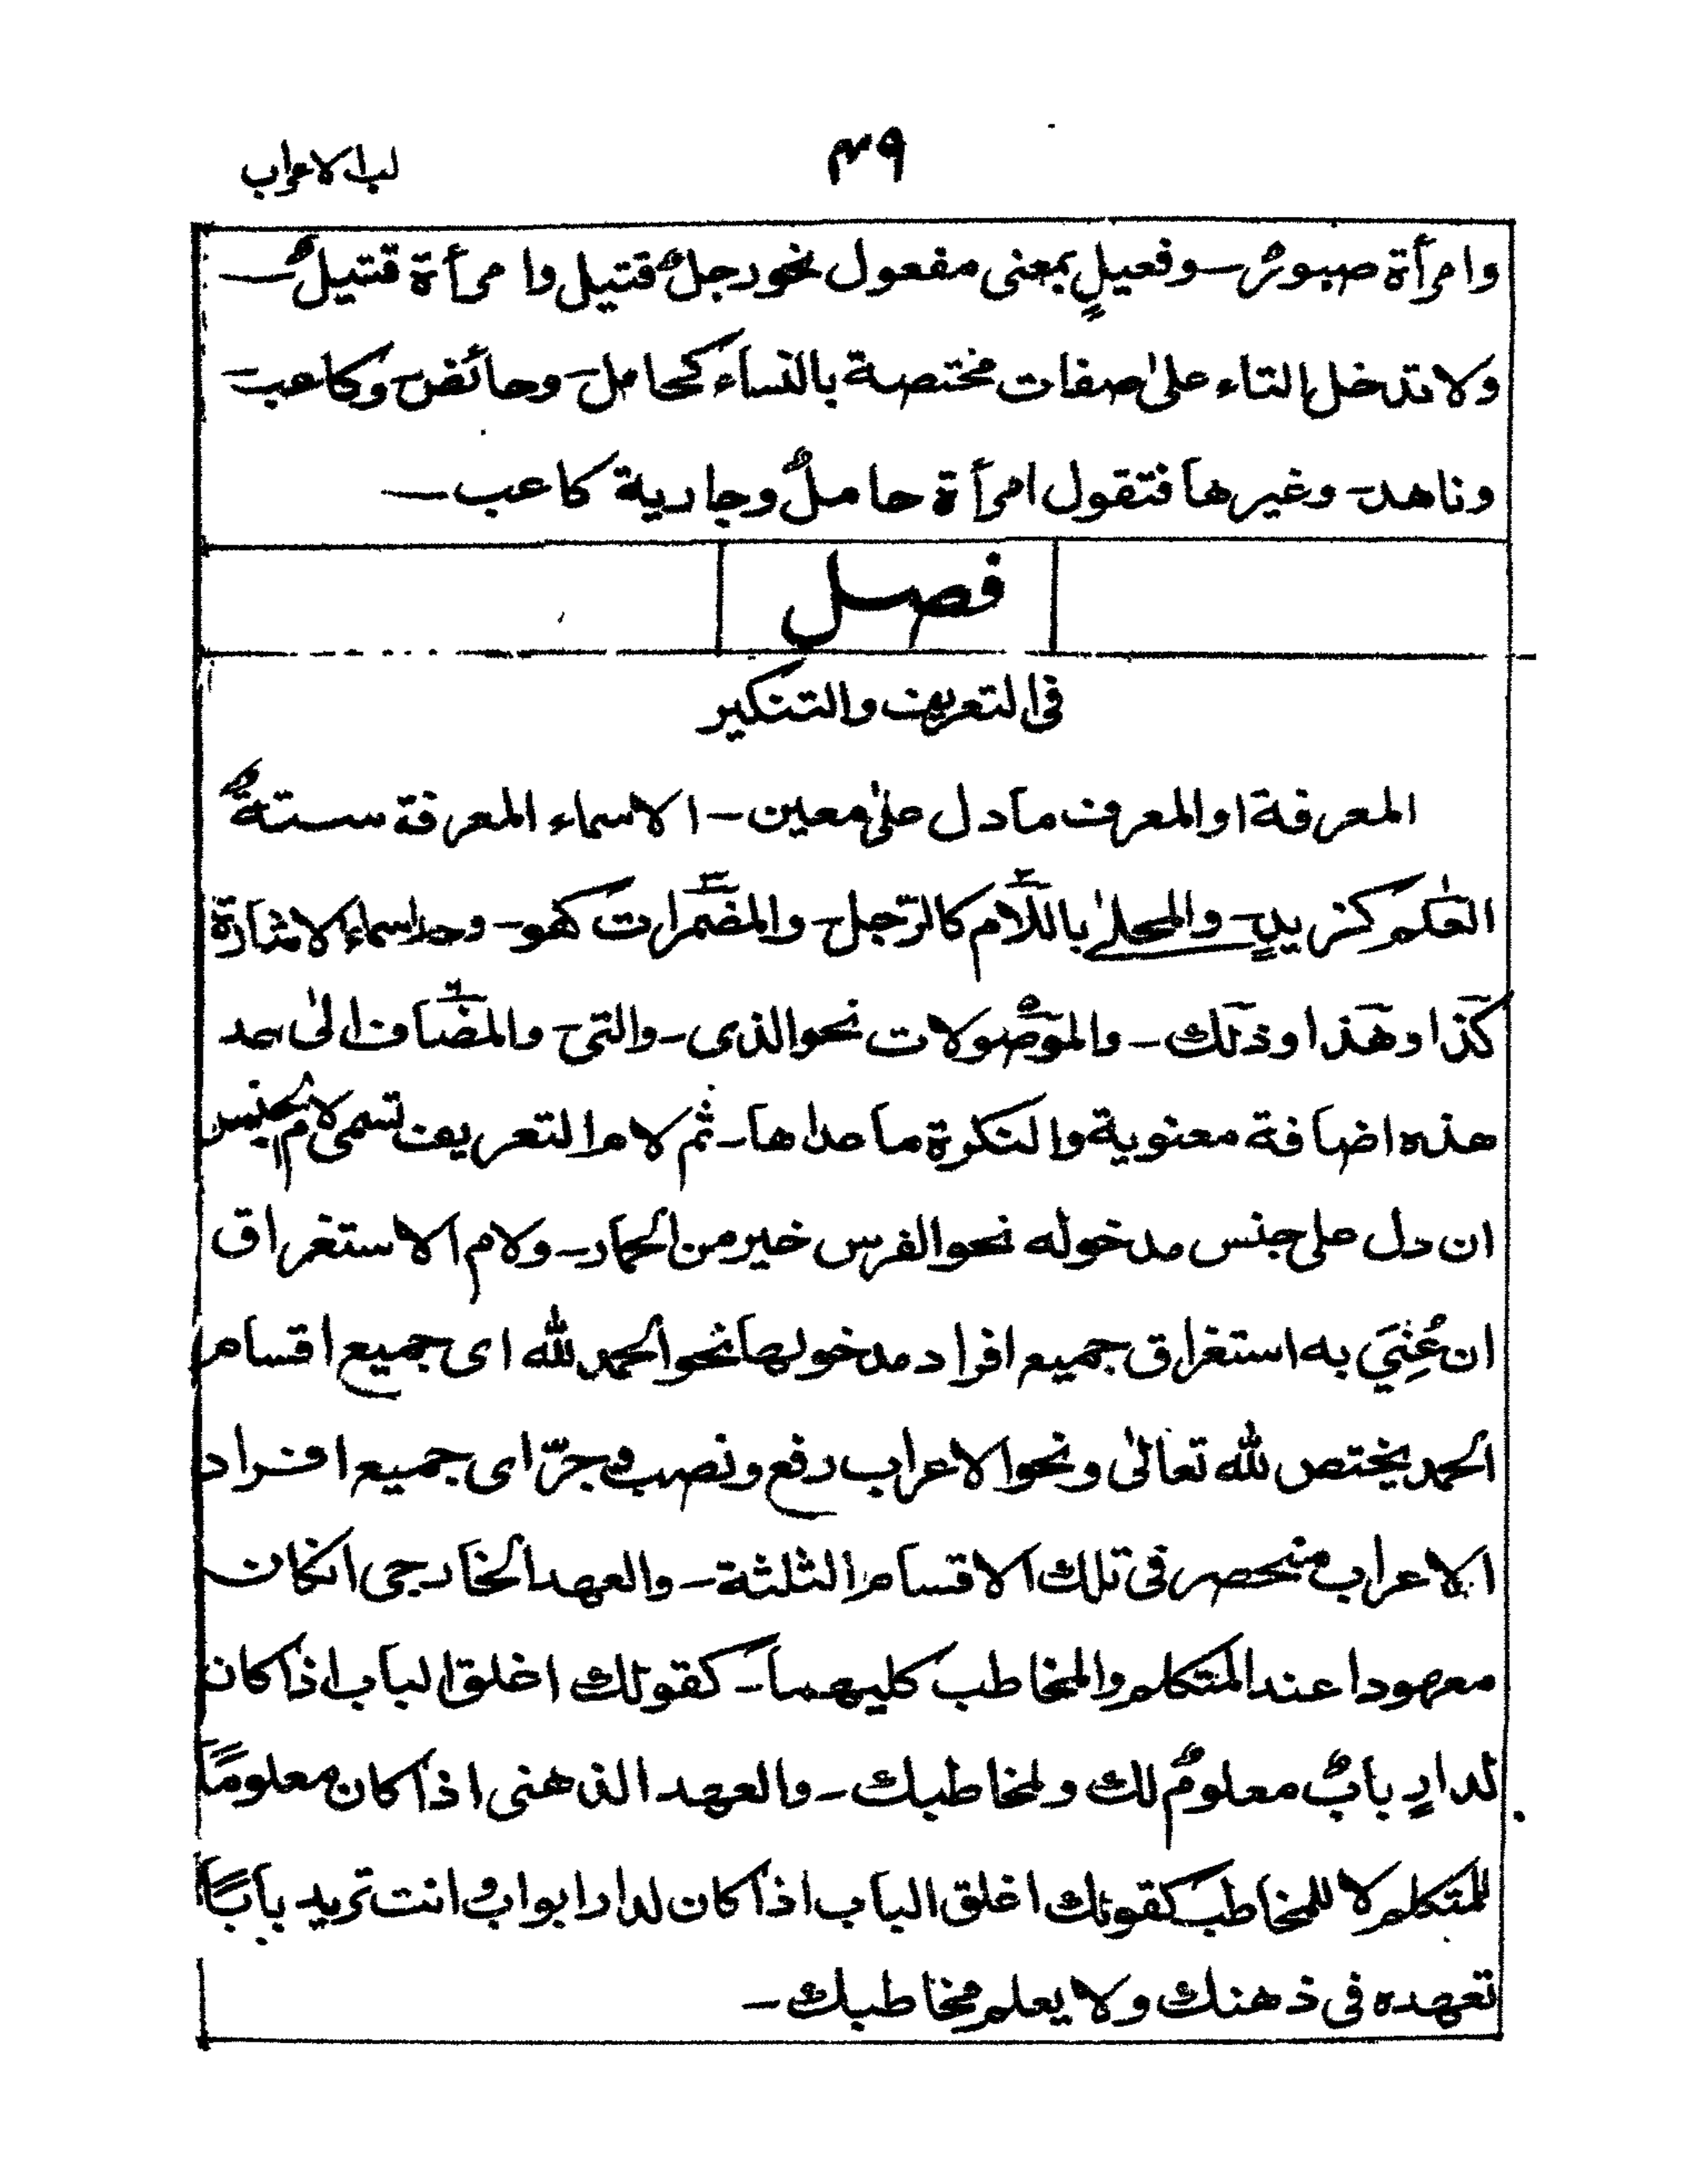 لب الاعراب
۴۹
وامرأة صبورٌ - وفعيلٍ بمعنى مفعول نحو رجلٌ قتيل وامرأة قتيلٌ -
ولا تدخل التاء علىٰ صفات مختصة بالنساء كحامل - وحائض - وكاعب -
وناهد - وغيرها فتقول امرأة حاملٌ وجارية كاعب -
فصل
فى التعريف والتنكير
المعرفة او المعرف ما دل علىٰ معين - الاسماء المعرفة ستةٌ
العلم كزيدٍ - والمحلے باللّام كالرّجل - والمضمرات كهو - واسماء الاشارة
كذا وهذا وذلك - والموصولات نحو الذى - والتى - والمضاف الىٰ احد
هذه اضافة معنوية والنكرة ما عداها - ثم لام التعريف تسمى لام الجنس
ان دل على جنس مدخوله نحو الفرس خير من الحمار - ولام الاستغراق
ان عُنِيَ به استغراق جميع افراد مدخولها نحو الحمد لله اى جميع اقسام
الحمد يختص لله تعالىٰ ونحو الاعراب رفع ونصب وجرّ اى جميع افراد
الاعراب منحصر فى تلك الاقسام الثلثة - والعهد الخارجى انكان
معهودا عند المتكلم والمخاطب كليهما - كقولك اغلق الباب اذا كان
لدارٍ بابٌ معلومٌ لك ولمخاطبك - والعهد الذهنى اذا كان معلومًا
للمتكلم لا للمخاطب كقولك اغلق الباب اذا كان لدار ابواب وانت تريد بابًا
تعهده فى ذهنك ولا يعلم مخاطبك -